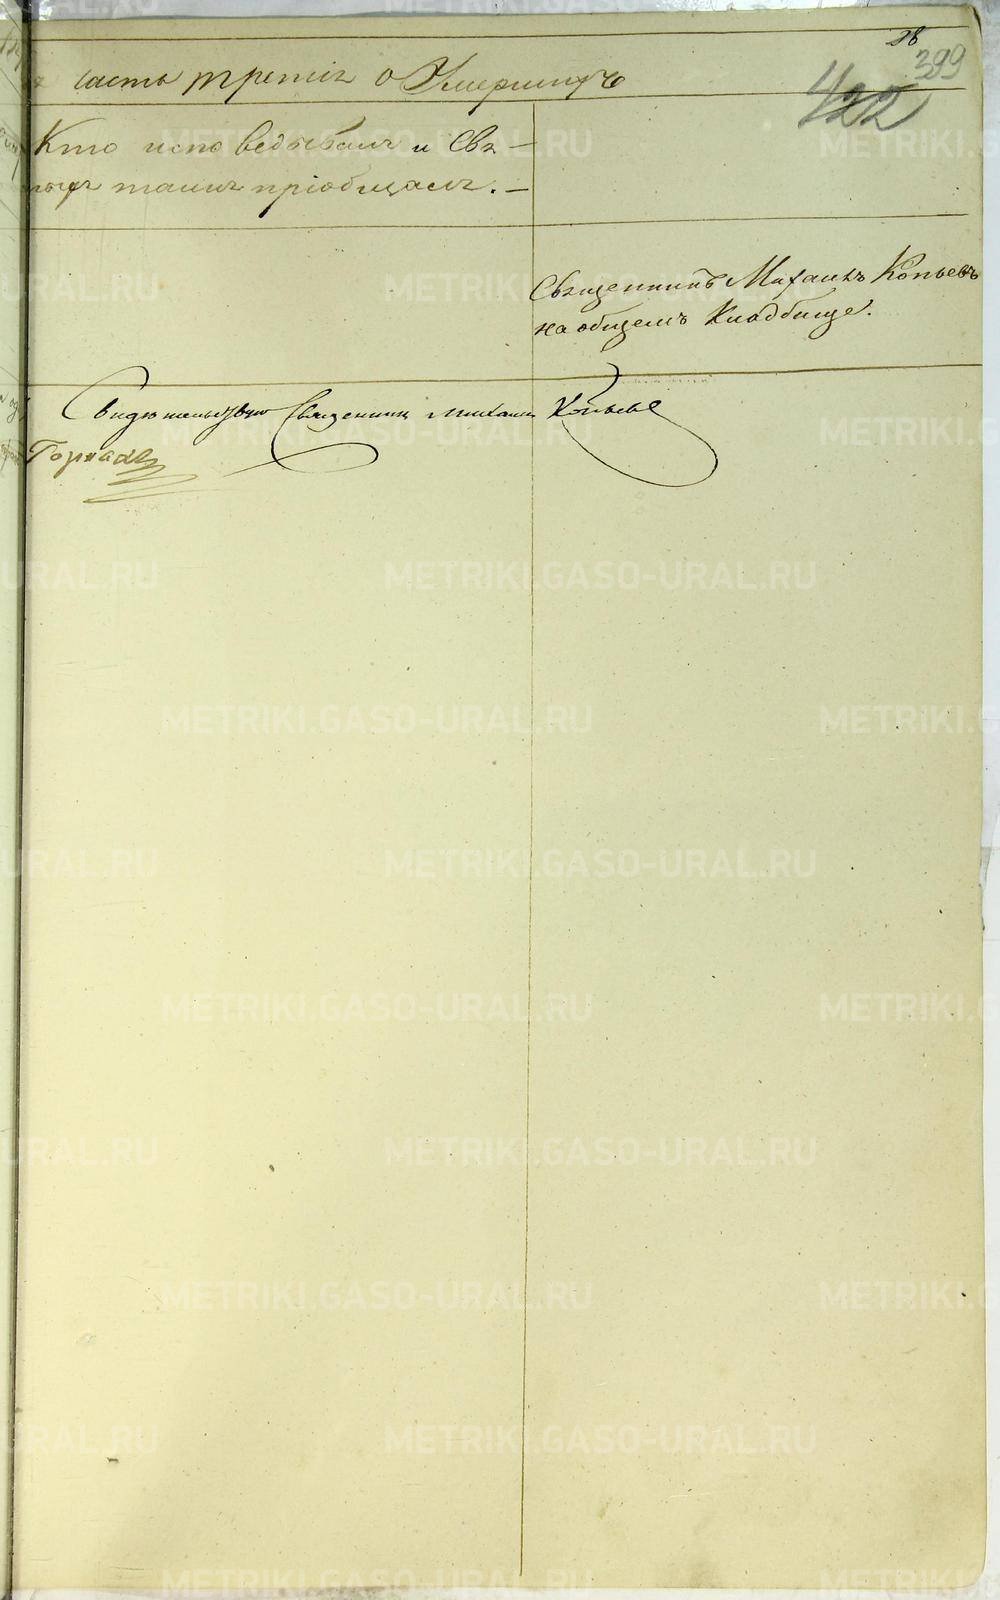 28
399
422
часть третія о Умершихъ
Кто исповедывалъ и Свя-
тыхъ таинъ пріобщалъ. —
Священникъ Михаилъ Копьевъ
на общемъ Кладбище.
Свидетельствую Священник Михаил Копьевъ
METRIKI.GASO-URAL.RU